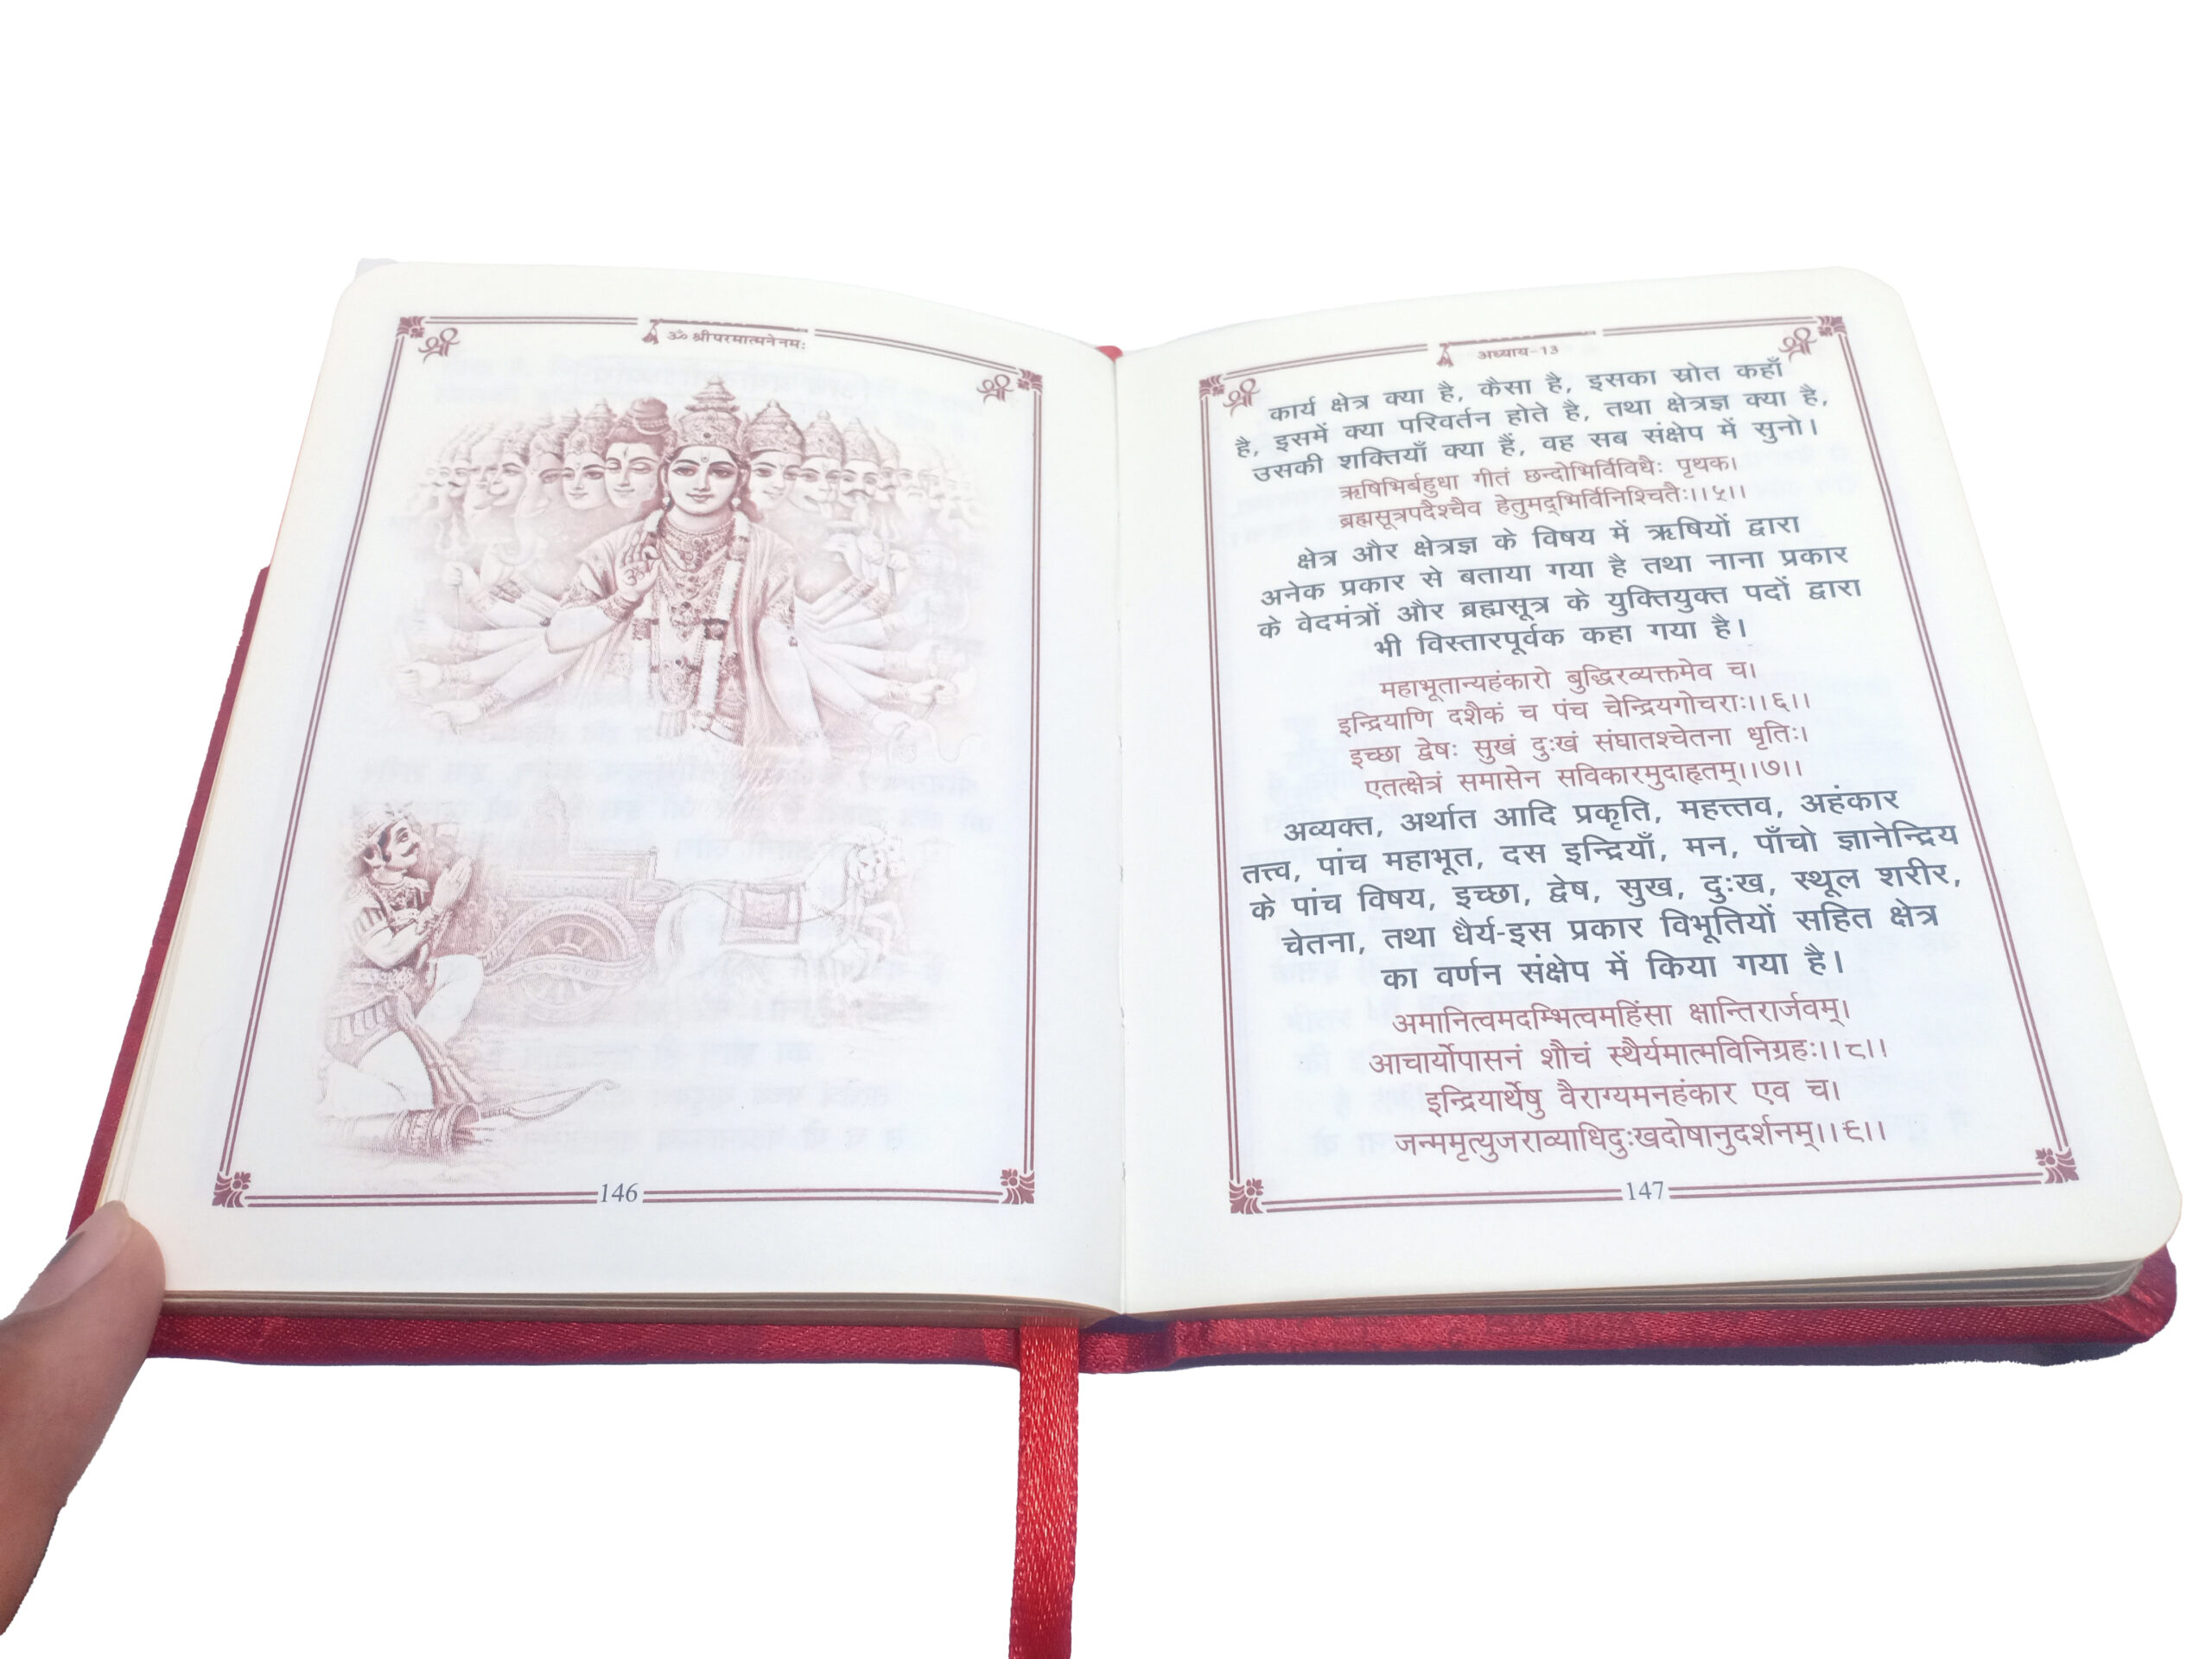 श्री
ॐ श्रीपरमात्मनेनमः
श्री
146
श्री
अध्याय-13
श्री
कार्य क्षेत्र क्या है, कैसा है, इसका स्रोत कहाँ
है, इसमें क्या परिवर्तन होते है, तथा क्षेत्रज्ञ क्या है,
उसकी शक्तियाँ क्या हैं, वह सब संक्षेप में सुनो।
ऋषिभिर्बहुधा गीतं छन्दोभिर्विविधैः पृथक।
ब्रह्मसूत्रपदैश्चैव हेतुमद्भिर्विनिश्चितैः।।५।।
क्षेत्र और क्षेत्रज्ञ के विषय में ऋषियों द्वारा
अनेक प्रकार से बताया गया है तथा नाना प्रकार
के वेदमंत्रों और ब्रह्मसूत्र के युक्तियुक्त पदों द्वारा
भी विस्तारपूर्वक कहा गया है।
महाभूतान्यहंकारो बुद्धिरव्यक्तमेव च।
इन्द्रियाणि दशैकं च पंच चेन्द्रियगोचराः।।६।।
इच्छा द्वेषः सुखं दुःखं संघातश्चेतना धृतिः।
एतत्क्षेत्रं समासेन सविकारमुदाहृतम्।।७।।
अव्यक्त, अर्थात आदि प्रकृति, महत्तत्व, अहंकार
तत्त्व, पांच महाभूत, दस इन्द्रियाँ, मन, पाँचो ज्ञानेन्द्रिय
के पांच विषय, इच्छा, द्वेष, सुख, दुःख, स्थूल शरीर,
चेतना, तथा धैर्य-इस प्रकार विभूतियों सहित क्षेत्र
का वर्णन संक्षेप में किया गया है।
अमानित्वमदम्भित्वमहिंसा क्षान्तिरार्जवम्।
आचार्योपासनं शौचं स्थैर्यमात्मविनिग्रहः।।८।।
इन्द्रियार्थेषु वैराग्यमनहंकार एव च।
जन्ममृत्युजराव्याधिदुःखदोषानुदर्शनम्।।६।।
147